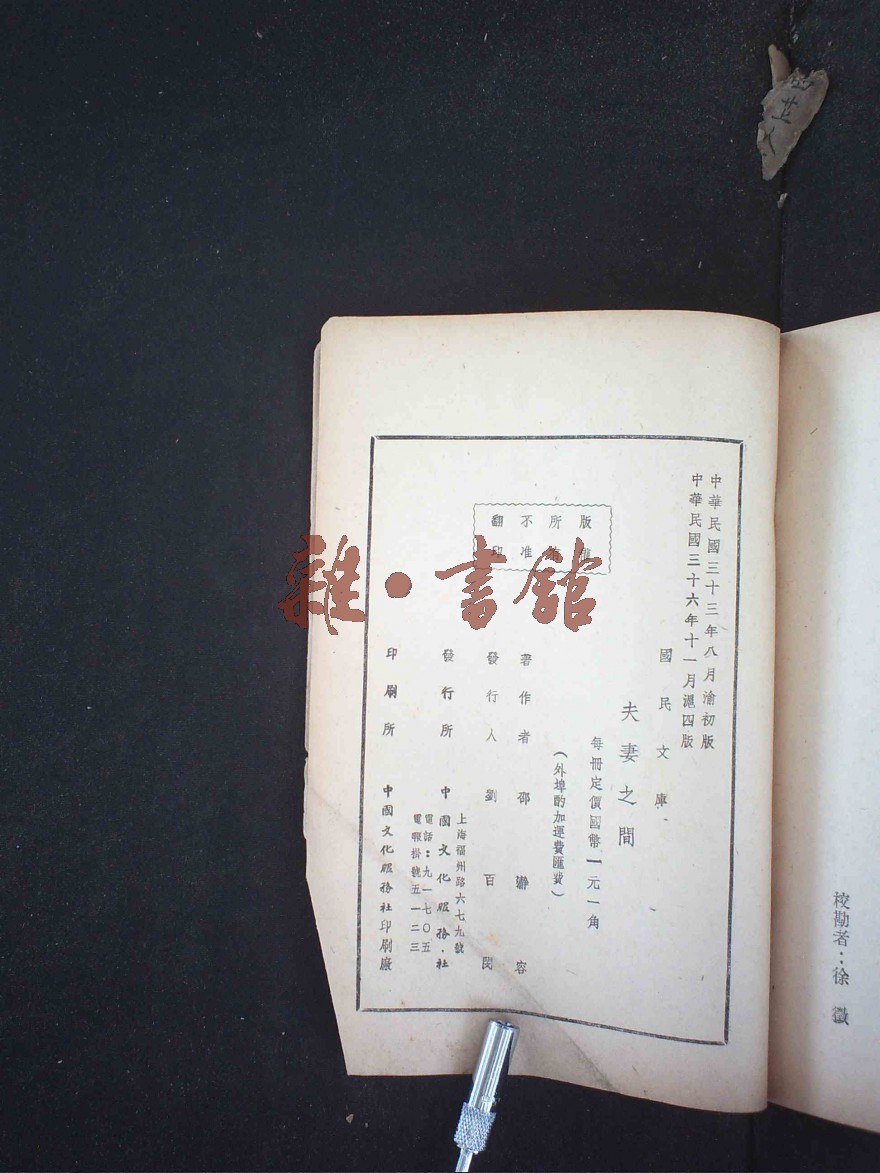 校勘者：徐徵
中華民國三十三年八月渝初版
中華民國三十六年十一月滬四版
國民文庫
夫妻之間
每冊定價國幣一元一角
（外埠酌加運費匯費）
版權
所有
不准
翻印
著作者 邵瀞容
發行人 劉百閔
上海福州路六七九號
發行所 中國文化服務社
電話：九一七〇五
電報掛號五一二三
印刷所 中國文化服務社印刷廠
雜·書館